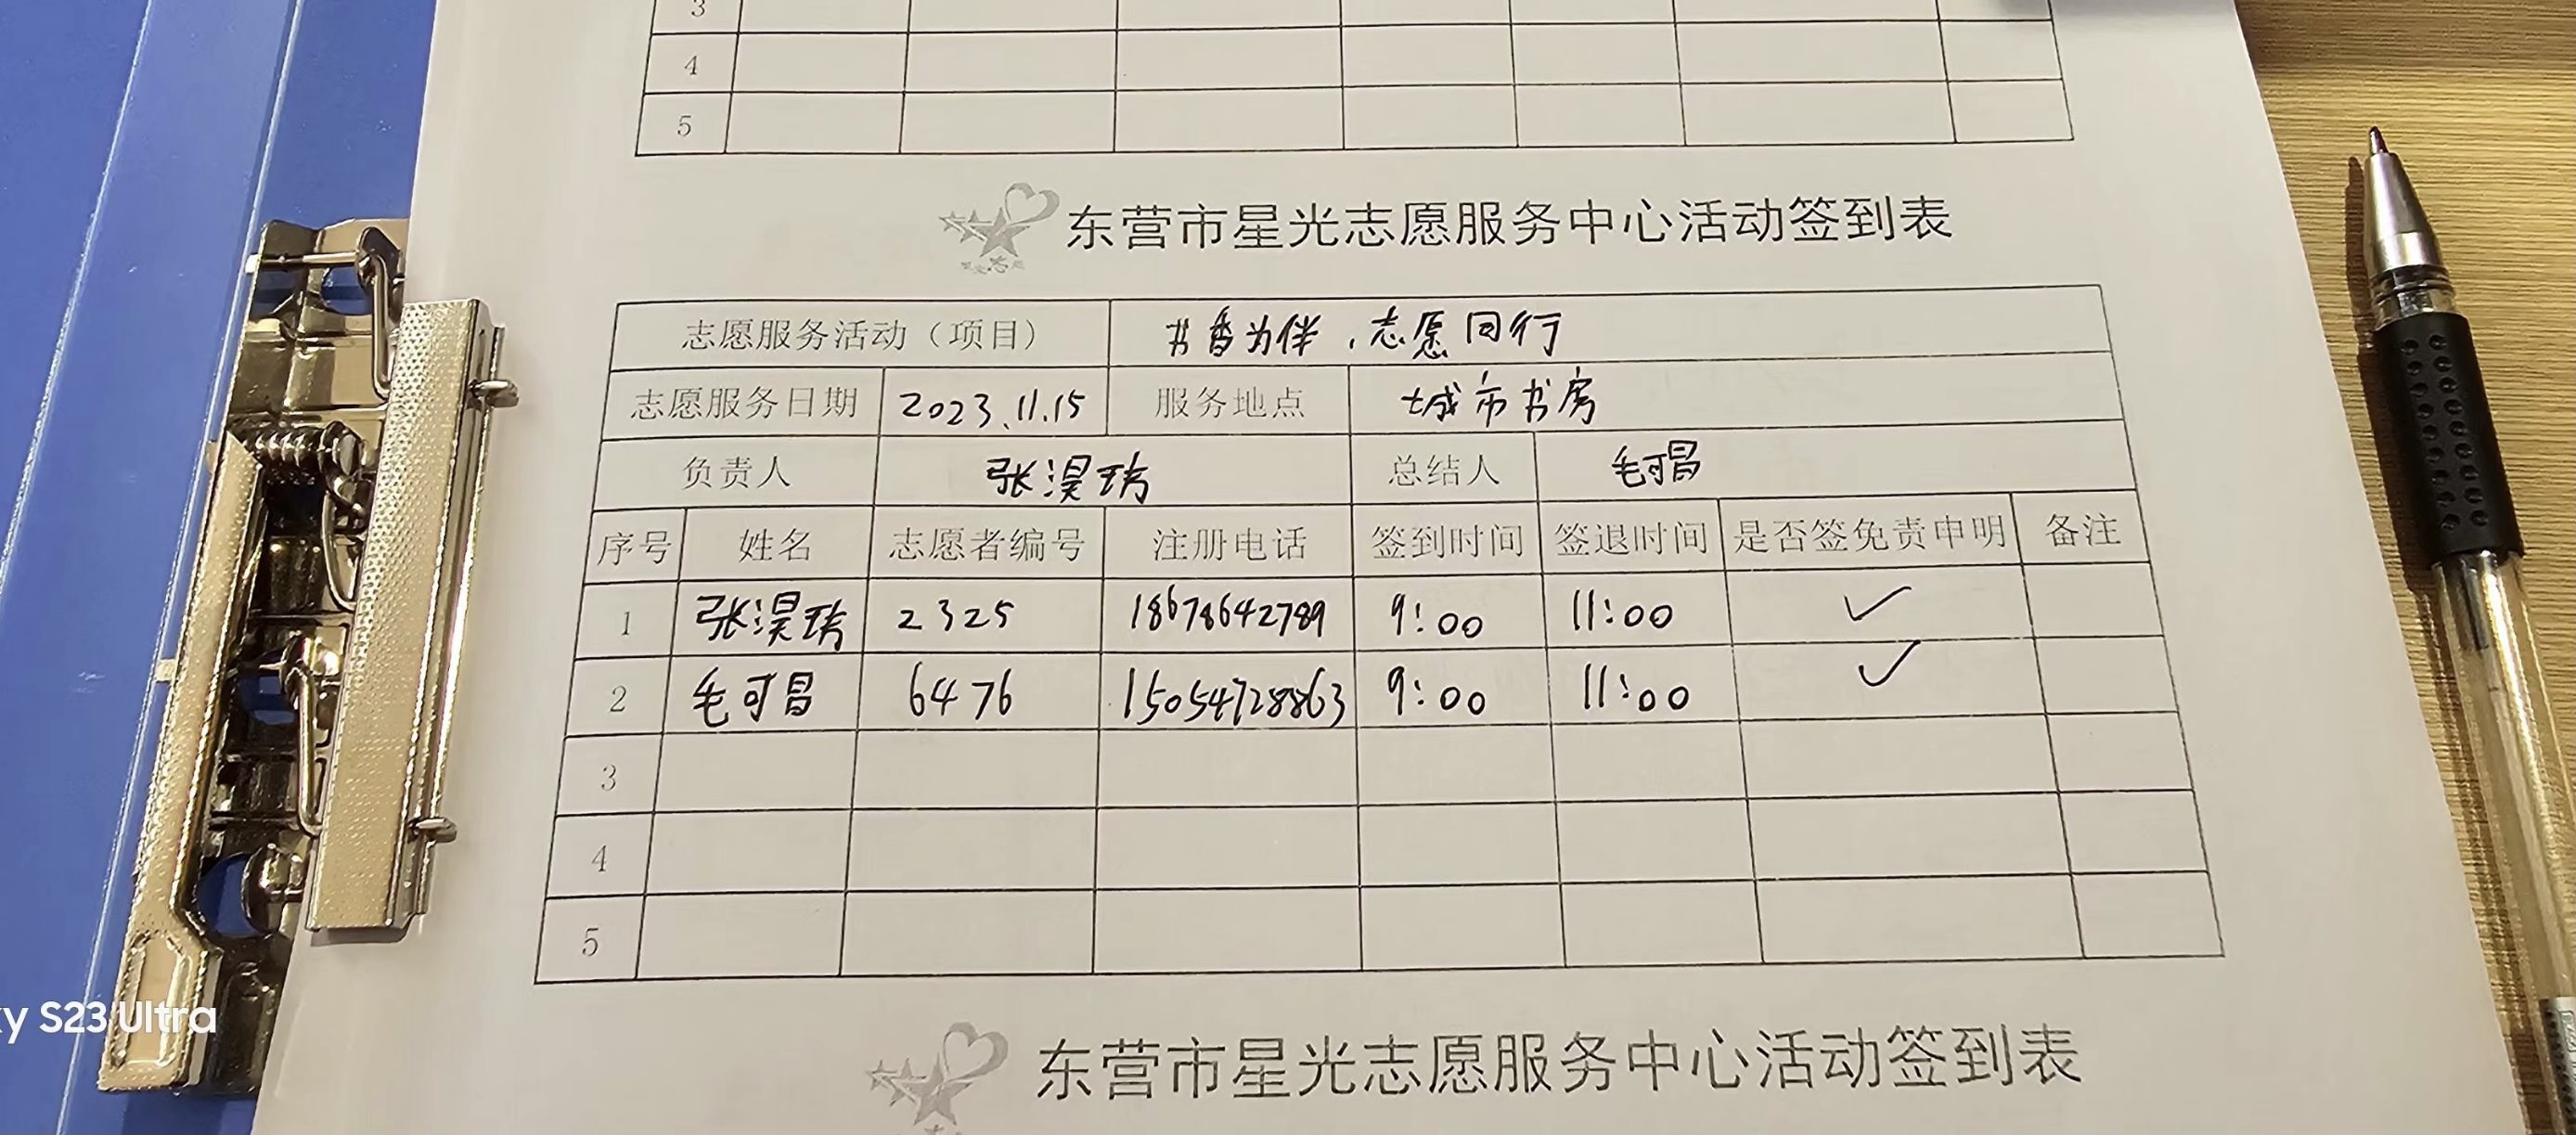 3
4
5
东营市星光志愿服务中心活动签到表
志愿服务活动（项目） 书香为伴，志愿同行
志愿服务日期 2023.11.15 服务地点 城市书房
负责人 张淏琇 总结人 毛可昌
序号 姓名 志愿者编号 注册电话 签到时间 签退时间 是否签免责申明 备注
1 张淏琇 2325 18678642789 9:00 11:00 ✓
2 毛可昌 6476 15054728863 9:00 11:00 ✓
3
4
5
东营市星光志愿服务中心活动签到表
y S23 Ultra